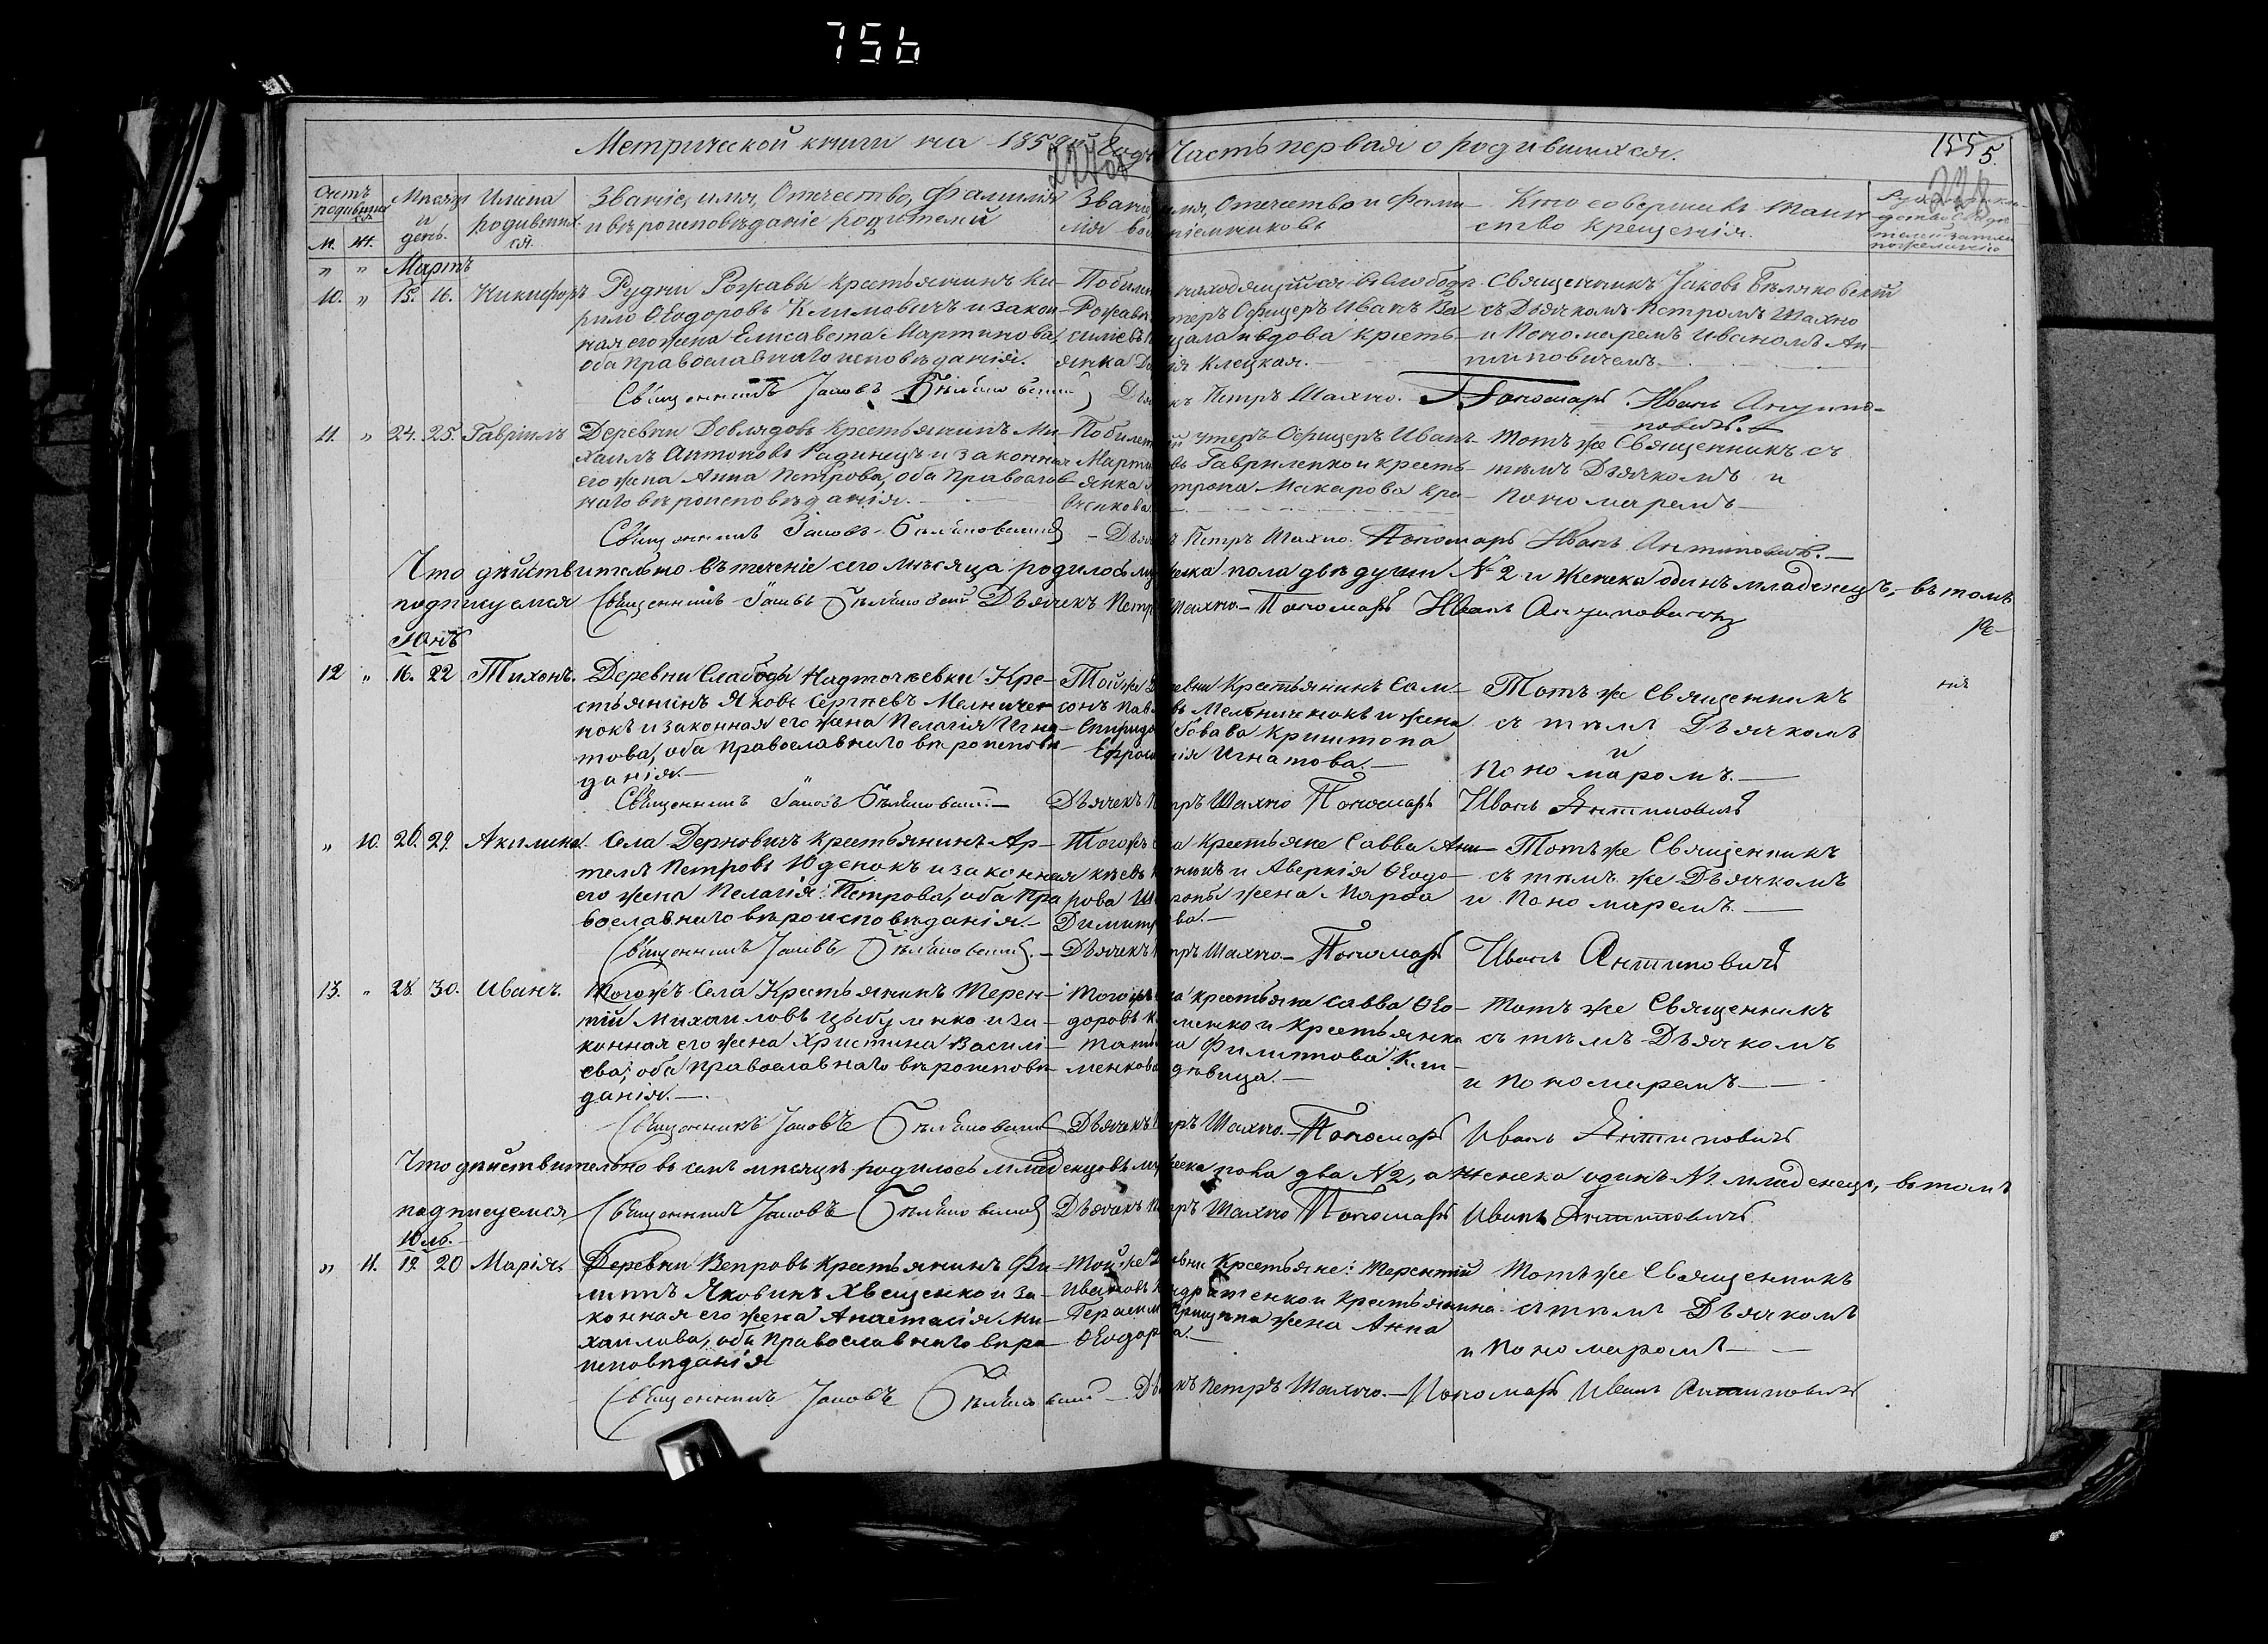 756
Метрической книги на 1858й Годъ Часть первая о родившихся.
155
5.
Счетъ родившихся
М. Ж.
Мѣсяцъ и день.
Имена родившихся.
Званіе, имя, Отчество, Фамилія
и вѣроисповѣданіе родителей
Званіе, имя, Отчество и Фами-
лія воспріемниковъ
Кто совершилъ Таин-
ство Крещенія.
" " Мартъ
10. " 15. 16. Никифоръ
Рудни Рожавы Крестьянинъ Ки-
рило Ѳеодоровъ Климовичъ и закон-
ная его жена Елисавета Мартинова,
оба Православнаго исповѣданія.
По билету находящійся въ слободѣ
Рожавѣ Унтеръ Офицеръ Иванъ Ва-
силіевъ и вдова кресть-
янка Клецкая.
Священникъ Іаковъ Бѣляковскій
съ Дьячкомъ Петромъ Шахно
и Пономаремъ Иваномъ Ан-
типовичемъ.
Священникъ Іаковъ Бѣляковскій Дьячекъ Петръ Шахно. Пономарь Иванъ Антипо-
вичъ.
11. " 24. 25. Гавріилъ
Деревни Довлядовъ Крестьянинъ Ми-
хаилъ Антоновъ Радинецъ и законная
его жена Анна Петрова, оба Православ-
наго вѣроисповѣданія.
По билету унтеръ Офицеръ Иванъ
Гавриленко и кресть-
янка Макарова Кра-
вченкова.
Тотъ же Священникъ съ
тѣмъ Дьячкомъ и
Пономаремъ
Священникъ Іаковъ Бѣляковскій - Дьячекъ Петръ Шахно. Пономарь Иванъ Антиповичъ.
Что дѣйствительно въ теченіе сего мѣсяца родилось мужеска пола двѣ души №2 и Женска одинъ младенецъ, въ томъ
подписуемся Священникъ Іаковъ Бѣляковскій Дьячекъ Петръ Шахно. Пономарь Иванъ Антиповичъ
Юнь
12 " 16. 22 Тихонъ.
Деревни Слабоды Надточаевки Кре-
стьянинъ Яковъ Сергѣевъ Мельничен-
нокъ и законная его жена Пелагія Игна-
това, оба Православнаго вѣроисповѣ-
данія.
Той же Деревни Крестьянинъ Сам-
сонъ Павловъ Мельниченокъ и жена
Криштопа
Ефросинія Игнатова.
Тотъ же Священникъ
съ тѣмъ Дьячкомъ
и
Пономаромъ.
Священникъ Іаковъ Бѣляковскій. Дьячекъ Петръ Шахно Пономарь Иванъ Антиповичъ
" 10. 26. 29. Акилина.
Села Дерновичъ Крестьянинъ Ар-
темъ Петровъ Юденокъ и законная
его жена Пелагія Петрова, оба Пра-
вославнаго вѣроисповѣданія.
Тогожъ Села Крестьяне Савва Ани-
кѣевъ и Аверкія Ѳеодо-
рова жена Марѳа
Димитрова.
Тотъ же Священникъ
съ тѣмъ же Дьячкомъ
и Пономаремъ.
Священникъ Іаковъ Бѣляковскій. Дьячекъ Петръ Шахно. Пономарь Иванъ Антиповичъ
13. " 28. 30. Иванъ.
Тогожъ Села Крестьянинъ Терен-
тій Михаиловъ Цыбуленко и за-
конная его жена Христина Василі-
ева, оба Православнаго вѣроисповѣ-
данія.
Тогожъ Села крестьяне Савва Ѳео-
доровъ Клименко и Крестьянка
Татьяна Филиппова Кли-
менкова дѣвица.
Тотъ же Священникъ
съ тѣмъ Дьячкомъ
и Пономаремъ
Священникъ Іаковъ Бѣляковскій Дьячекъ Петръ Шахно. Пономарь Иванъ Антиповичъ
Что дѣйствительно въ семъ мѣсяцѣ родилось младенцовъ мужеска пола два №2, а женска одинъ №1 младенецъ, въ томъ
подписуемся Священникъ Іаковъ Бѣляковскій Дьячекъ Петръ Шахно Пономарь Иванъ Антиповичъ.
Юль.
" 11. 19. 20 Марія.
Деревни Вепровъ Крестьянинъ Фи-
липъ Яковинъ Хвещенко и за-
конная его жена Анастасія Ми-
хаилова, оба Православнаго вѣро-
исповѣданія
Той же Деревни Крестьяне: Терентій
Ивановъ Кондратенко и Крестьянина
Герасима жена Анна
Ѳеодорова.
Тотъ же Священникъ
съ тѣмъ Дьячкомъ
и Пономаромъ
Священникъ Іаковъ Бѣляковскій Дьячекъ Петръ Шахно. Пономарь Иванъ Антиповичъ